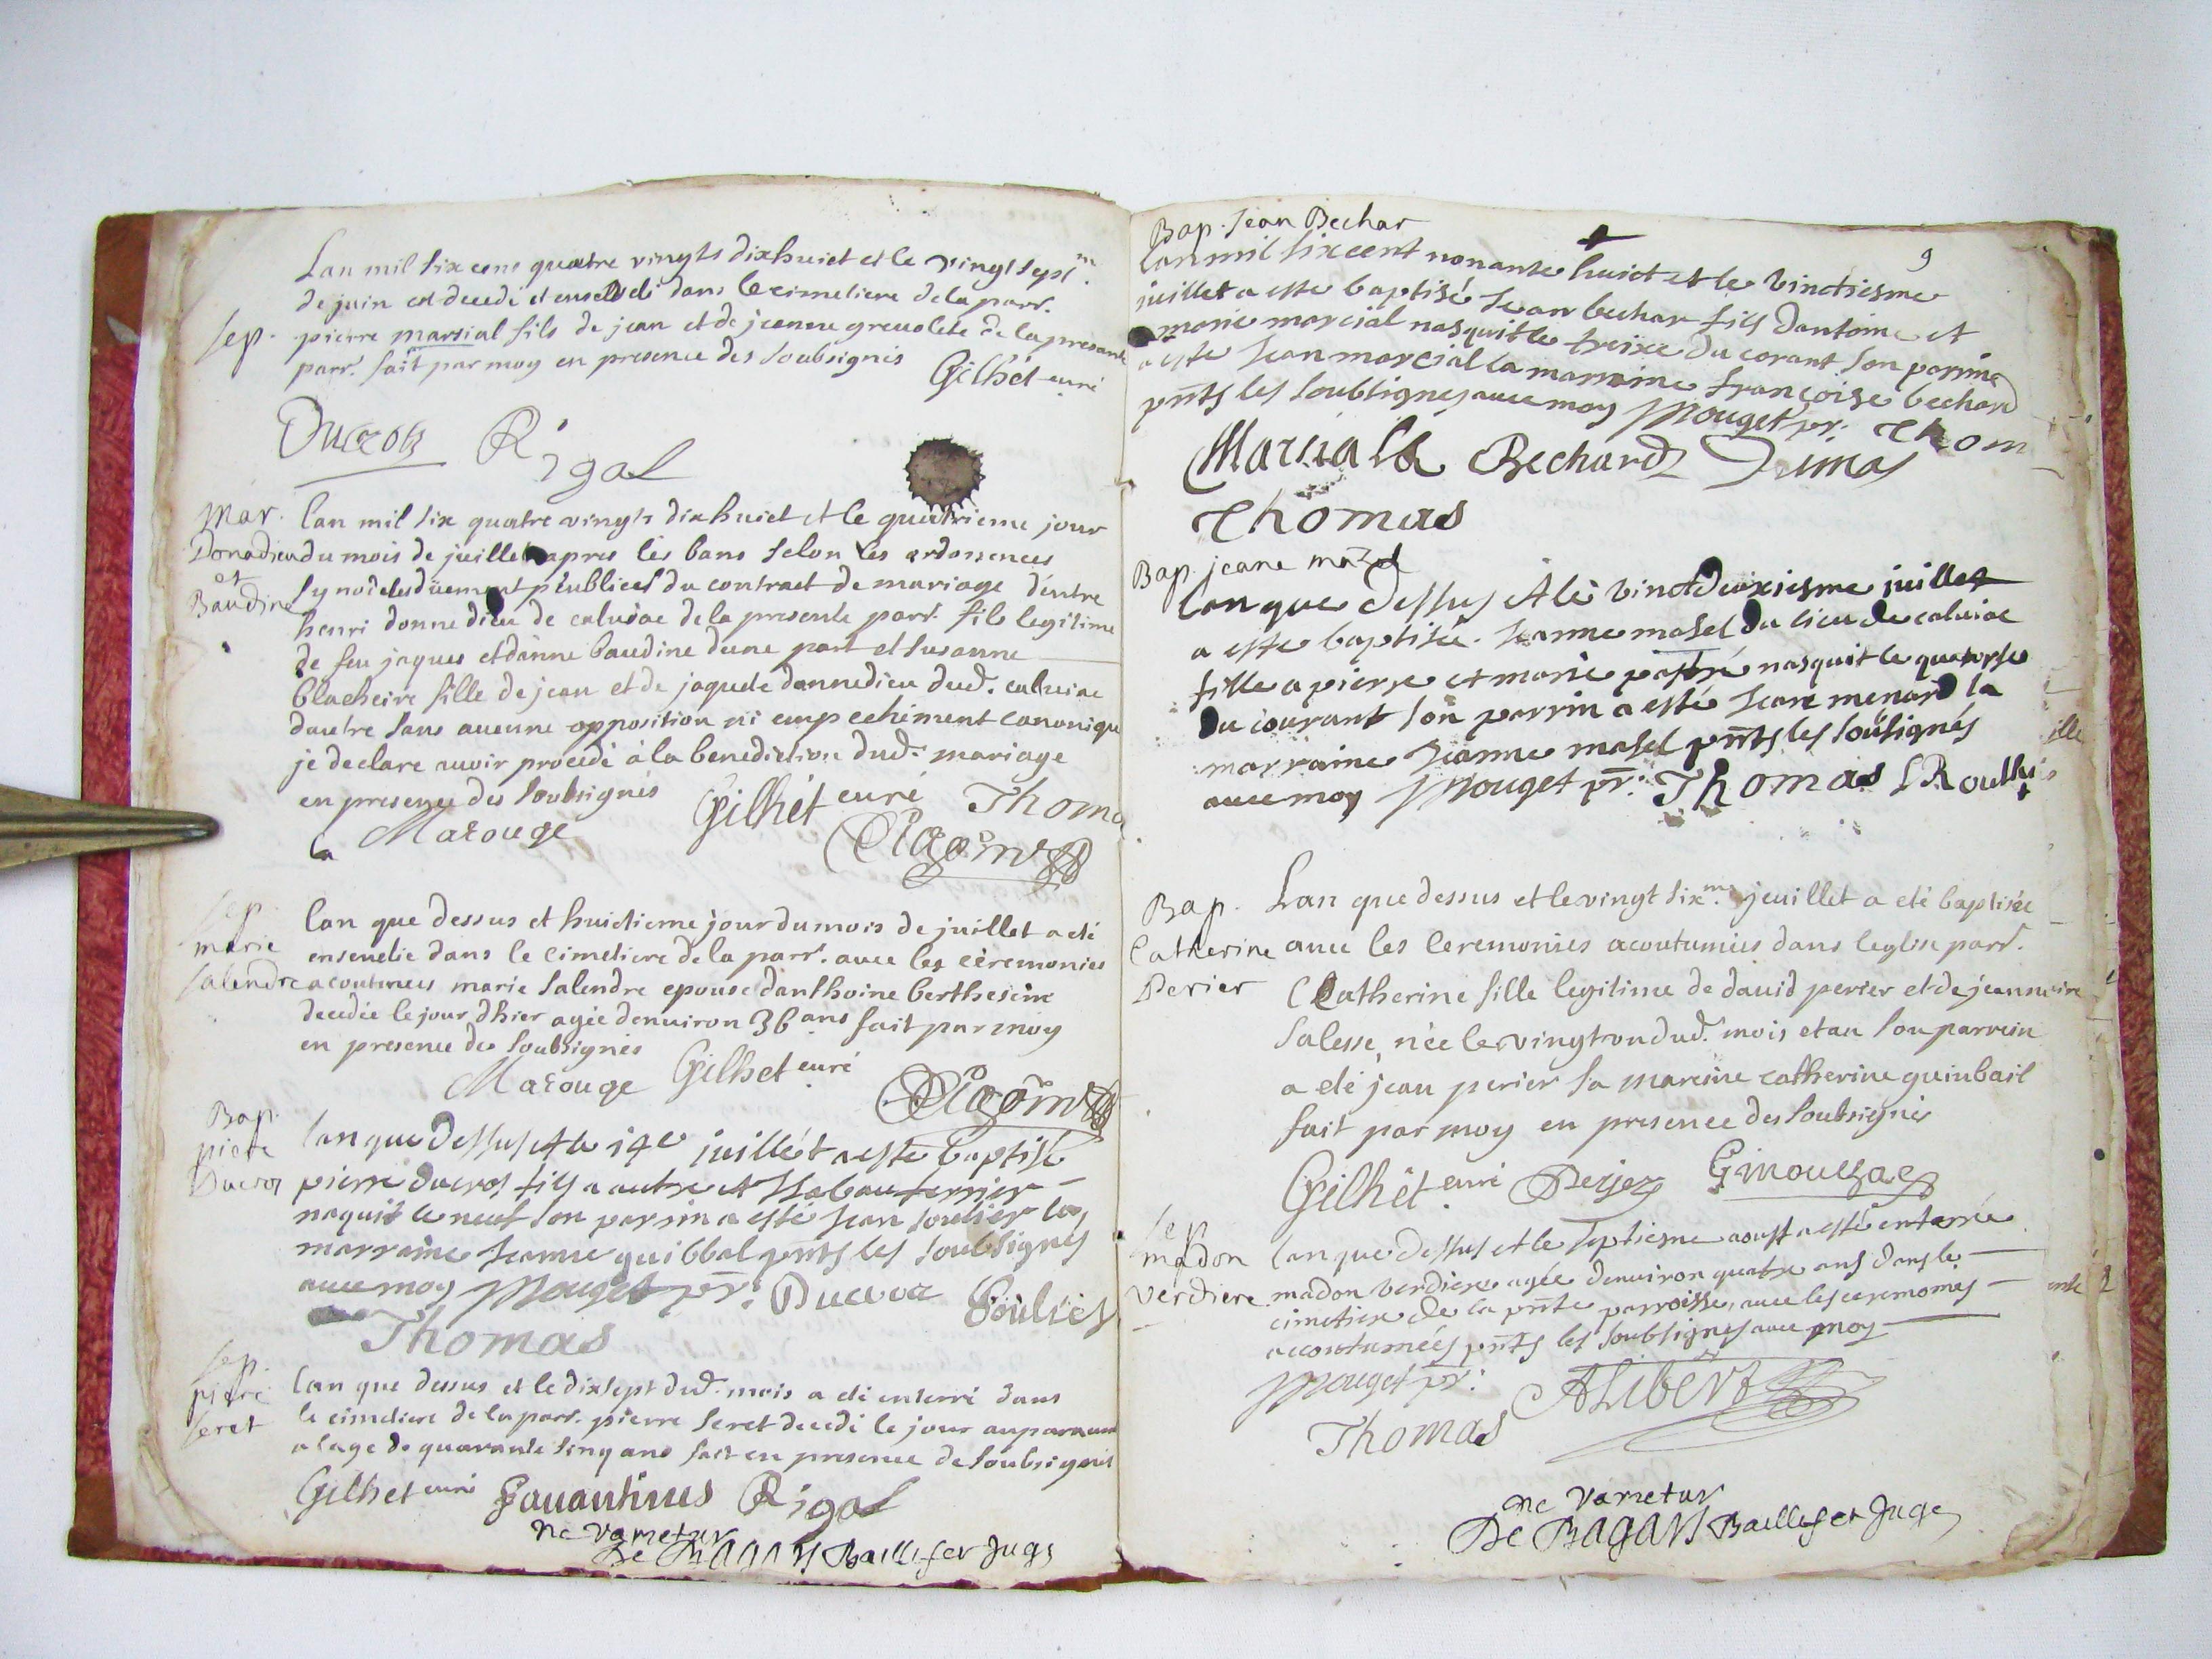 Lan mil six cens quatre vingts dixhuict et le vingt sept.m
de juin est decedé et enseveli dans le cimetiere dela parr.
sep. pierre martial fils de jean et de jeanne grevolete de la presante
parr. fait par moy en presence des soubsignés Gilhet curé
Ducros Rigal
Mar. lan mil six quatre vingts dixhuict et le quatrieme jour
Donadieu du mois de juillet apres les bans selon les ordonences
et synodeles düement publiees du contract de mariage dentre
Baudine henri donnedieu de calviac de la presente parr. fils legitime
de feu jaques et danne baudine dune part et susanne
blacheire fille de jean et de jaquete donnedieu dud. calviac
dautre sans aucune opposition ni empechement canonique
je declare avoir procedé à la benediction dud. mariage
en presence des soubsignés Gilhet curé Thoma
la Marouge
sep. lan que dessus et huictieme jour du mois de juillet a eté
marie ensevelie dans le cimetiere de la parr. avec les ceremonies
salendre acoutmees marie salendre epouse danthoine berthesene
decedée le jour dhier agée denviron 36 ans fait par moy
en presence des soubsignés
Marouge Gilhet curé
Bap. lan que dessus et le 14e juillet a este baptisé
piere pierre ducros fils a autre et Isabeau ferrier
Ducros naquit le neuf son parrin a esté jean soulier la
marraine jeanne quibbal pnts les soubsignes
avec moy Mouget pr. Ducros Soulier
Thomas
sep. lan que dessus et le dixsept dud. mois a eté enterré dans
pierre le cimetiere de la parr. pierre seret decedé le jour auparavant
seret a lage de quarante sinq ans fait en presence de soubsignés
Gilhet curé Gavanhius Rigal
ne varietur
De Bagars Baillif et Juge
Bap. Jean Bechar
9
lan mil six cent nonante huict et le vinctiesme
juillet a este baptisé jean bechar fils dantoine et
marie marcial nasquit le treixe du corant son parrine
a este jean marcial la marraine françoise bechard
pnts les soubsignes avec moy Mouget pr. Thom
Marciall Bechard Dumas
Thomas
Bap. jeane mazel
lan que dessus et le vinct deuxiesme juillet
a este baptisée jeanne masel du lieu de calviac
fille a pierre et marie pastré nasquit le quatorse
du courant son parrin a esté jean menard la
marraine jeanne masel pnts les sousignés
avec moy Mouget pr. Thomas
Bap. Lan que dessus et le vingt six.me jeuillet a eté baptisée
Catherine avec les ceremonies acoutumées dans leglise parr.
Perier Catherine fille legitime de david perier et de jeanne
salesse, née le vingt un dud. mois et an son parrein
a eté jean perier sa mareine catherine guinbail
fait par moy en presence des soubsignés
Gilhet curé Perjer
sep. lan que dessus et le septiesme aoust a esté enterrée
madon madon verdiere agée denviron quatre ans dans le
verdiere cimetiere de la pnte parroisse, avec les ceremonies
accoutumées pnts les soubsignes avec moy
Mouget pr. Alibert
Thomas
ne varietur
De Bagars Baillif et Juge